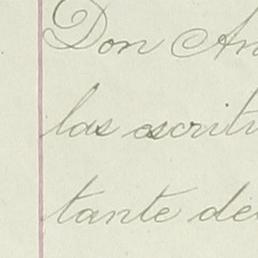 Don An
las escritu
tante de